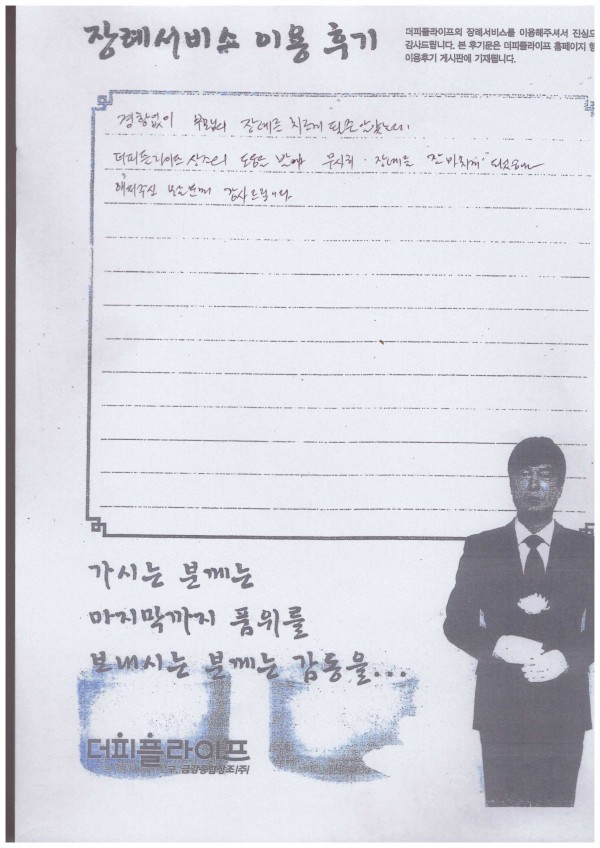 장례서비스 이용 후기
더피플라이프의 장례서비스를 이용해주셔서 진심으
감사드립니다. 본 후기문은 더피플라이프 홈페이지 행
이용후기 게시판에 기재됩니다.
경황없이 부모님의 장례를 치르게
더피플라이프 상조의 도움을 받아 무사히 장례를 잘
감사드립니다
가시는 분께는
마지막까지 품위를
보내시는 분께는 감동을...
더피플라이프
구. 금강종합상조(주)